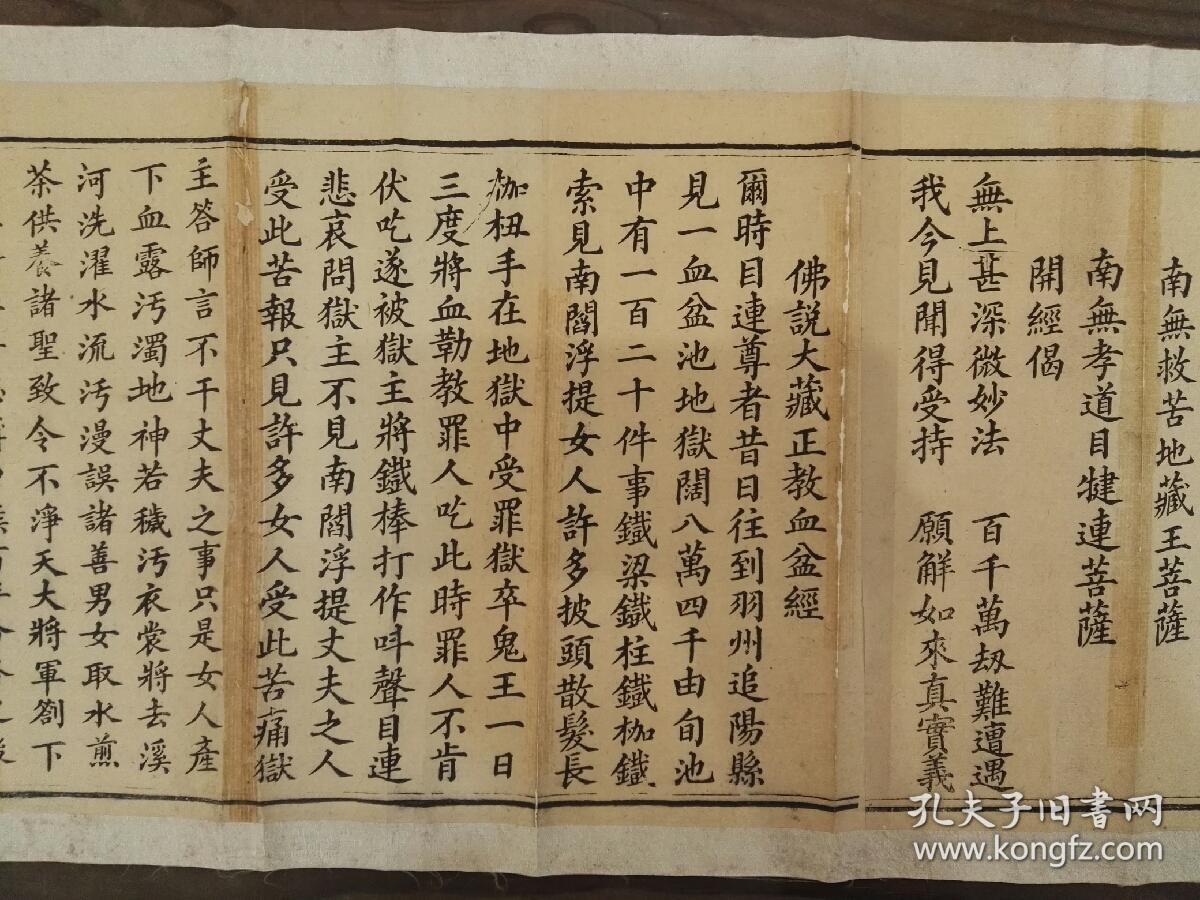 南無救苦地藏王菩薩
南無孝道目犍連菩薩
開經偈
無上甚深微妙法　百千萬劫難遭遇
我今見聞得受持　願解如來真實義
佛說大藏正教血盆經
爾時目連尊者昔日往到羽州追陽縣
見一血盆池地獄闊八萬四千由旬池
中有一百二十件事鐵梁鐵柱鐵枷鐵
索見南閻浮提女人許多披頭散髮長
枷杻手在地獄中受罪獄卒鬼王一日
三度將血勒教罪人吃此時罪人不肯
伏吃遂被獄主將鐵棒打作呌聲目連
悲哀問獄主不見南閻浮提丈夫之人
受此苦報只見許多女人受此苦痛獄
主答師言不干丈夫之事只是女人產
下血露汚濁地神若穢汚衣裳將去溪
河洗濯水流汚漫誤諸善男女取水煎
茶供養諸聖致令不淨天大將軍劄下
孔夫子旧书网
www.kongfz.com